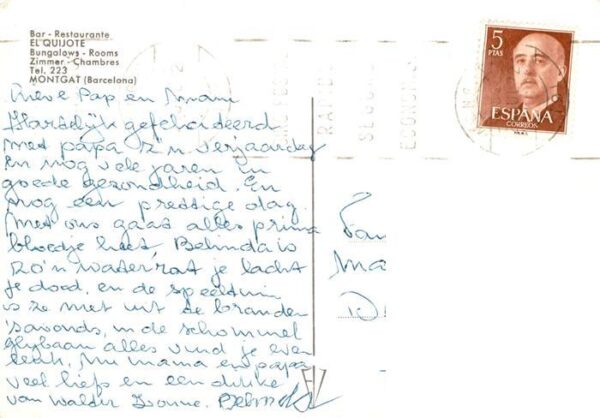 Bar - Restaurante
EL QUIJOTE
Bungalows - Rooms
Zimmer - Chambres
Tel. 223
MONTGAT (Barcelona)
5
PTAS
ESPAÑA
CORREOS
Lieve Pap en Mam
Hartelijk gefeliciteerd
met papa z'n verjaardag
en nog vele jaren in
goede gezondheid. En
nog een prettige dag.
Met ons gaat alles prima
bloedje heet, Belinda is
zo'n waterrat je lacht
je dood, en de speeltuin
is ze met uit de branden
's avonds, in de schommel
glijbaan alles vind je even
leuk, Nu mama en papa
veel liefs en een dikke
van Walter Ivonne. Belinda
Fam
Ma